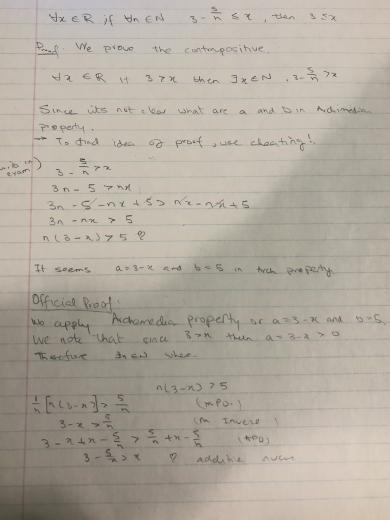 ∀x∈R if ∀n∈N 3 - 5/n ≤ x, then 3 ≤ x
Proof. We prove the contrapositive.
∀x ∈ R if 3 > x then ∃x∈N, 3 - 5/n > x
Since its not clear what are a and b in Archimedia
Property.
→ To find idea of proof, use cheating!
exam)
3 - 5/n > x
3n - 5 > nx
3n - 5 - nx + 5 > nx - nx + 5
3n - nx > 5
n(3-x) > 5
It seems a=3-x and b=5 in Arch property
Official Proof:
We apply Archimedia property or a=3-x and b=5,
We note that since 3>x then a=3-x > 0
Therefore ∃n∈N where
n(3-x) > 5
1/n [n(3-x)] > 5/n (MPO.)
3-x > 5/n (m Inverse)
3 - x + x - 5/n > 5/n + x - 5/n (APO)
3 - 5/n > x additive